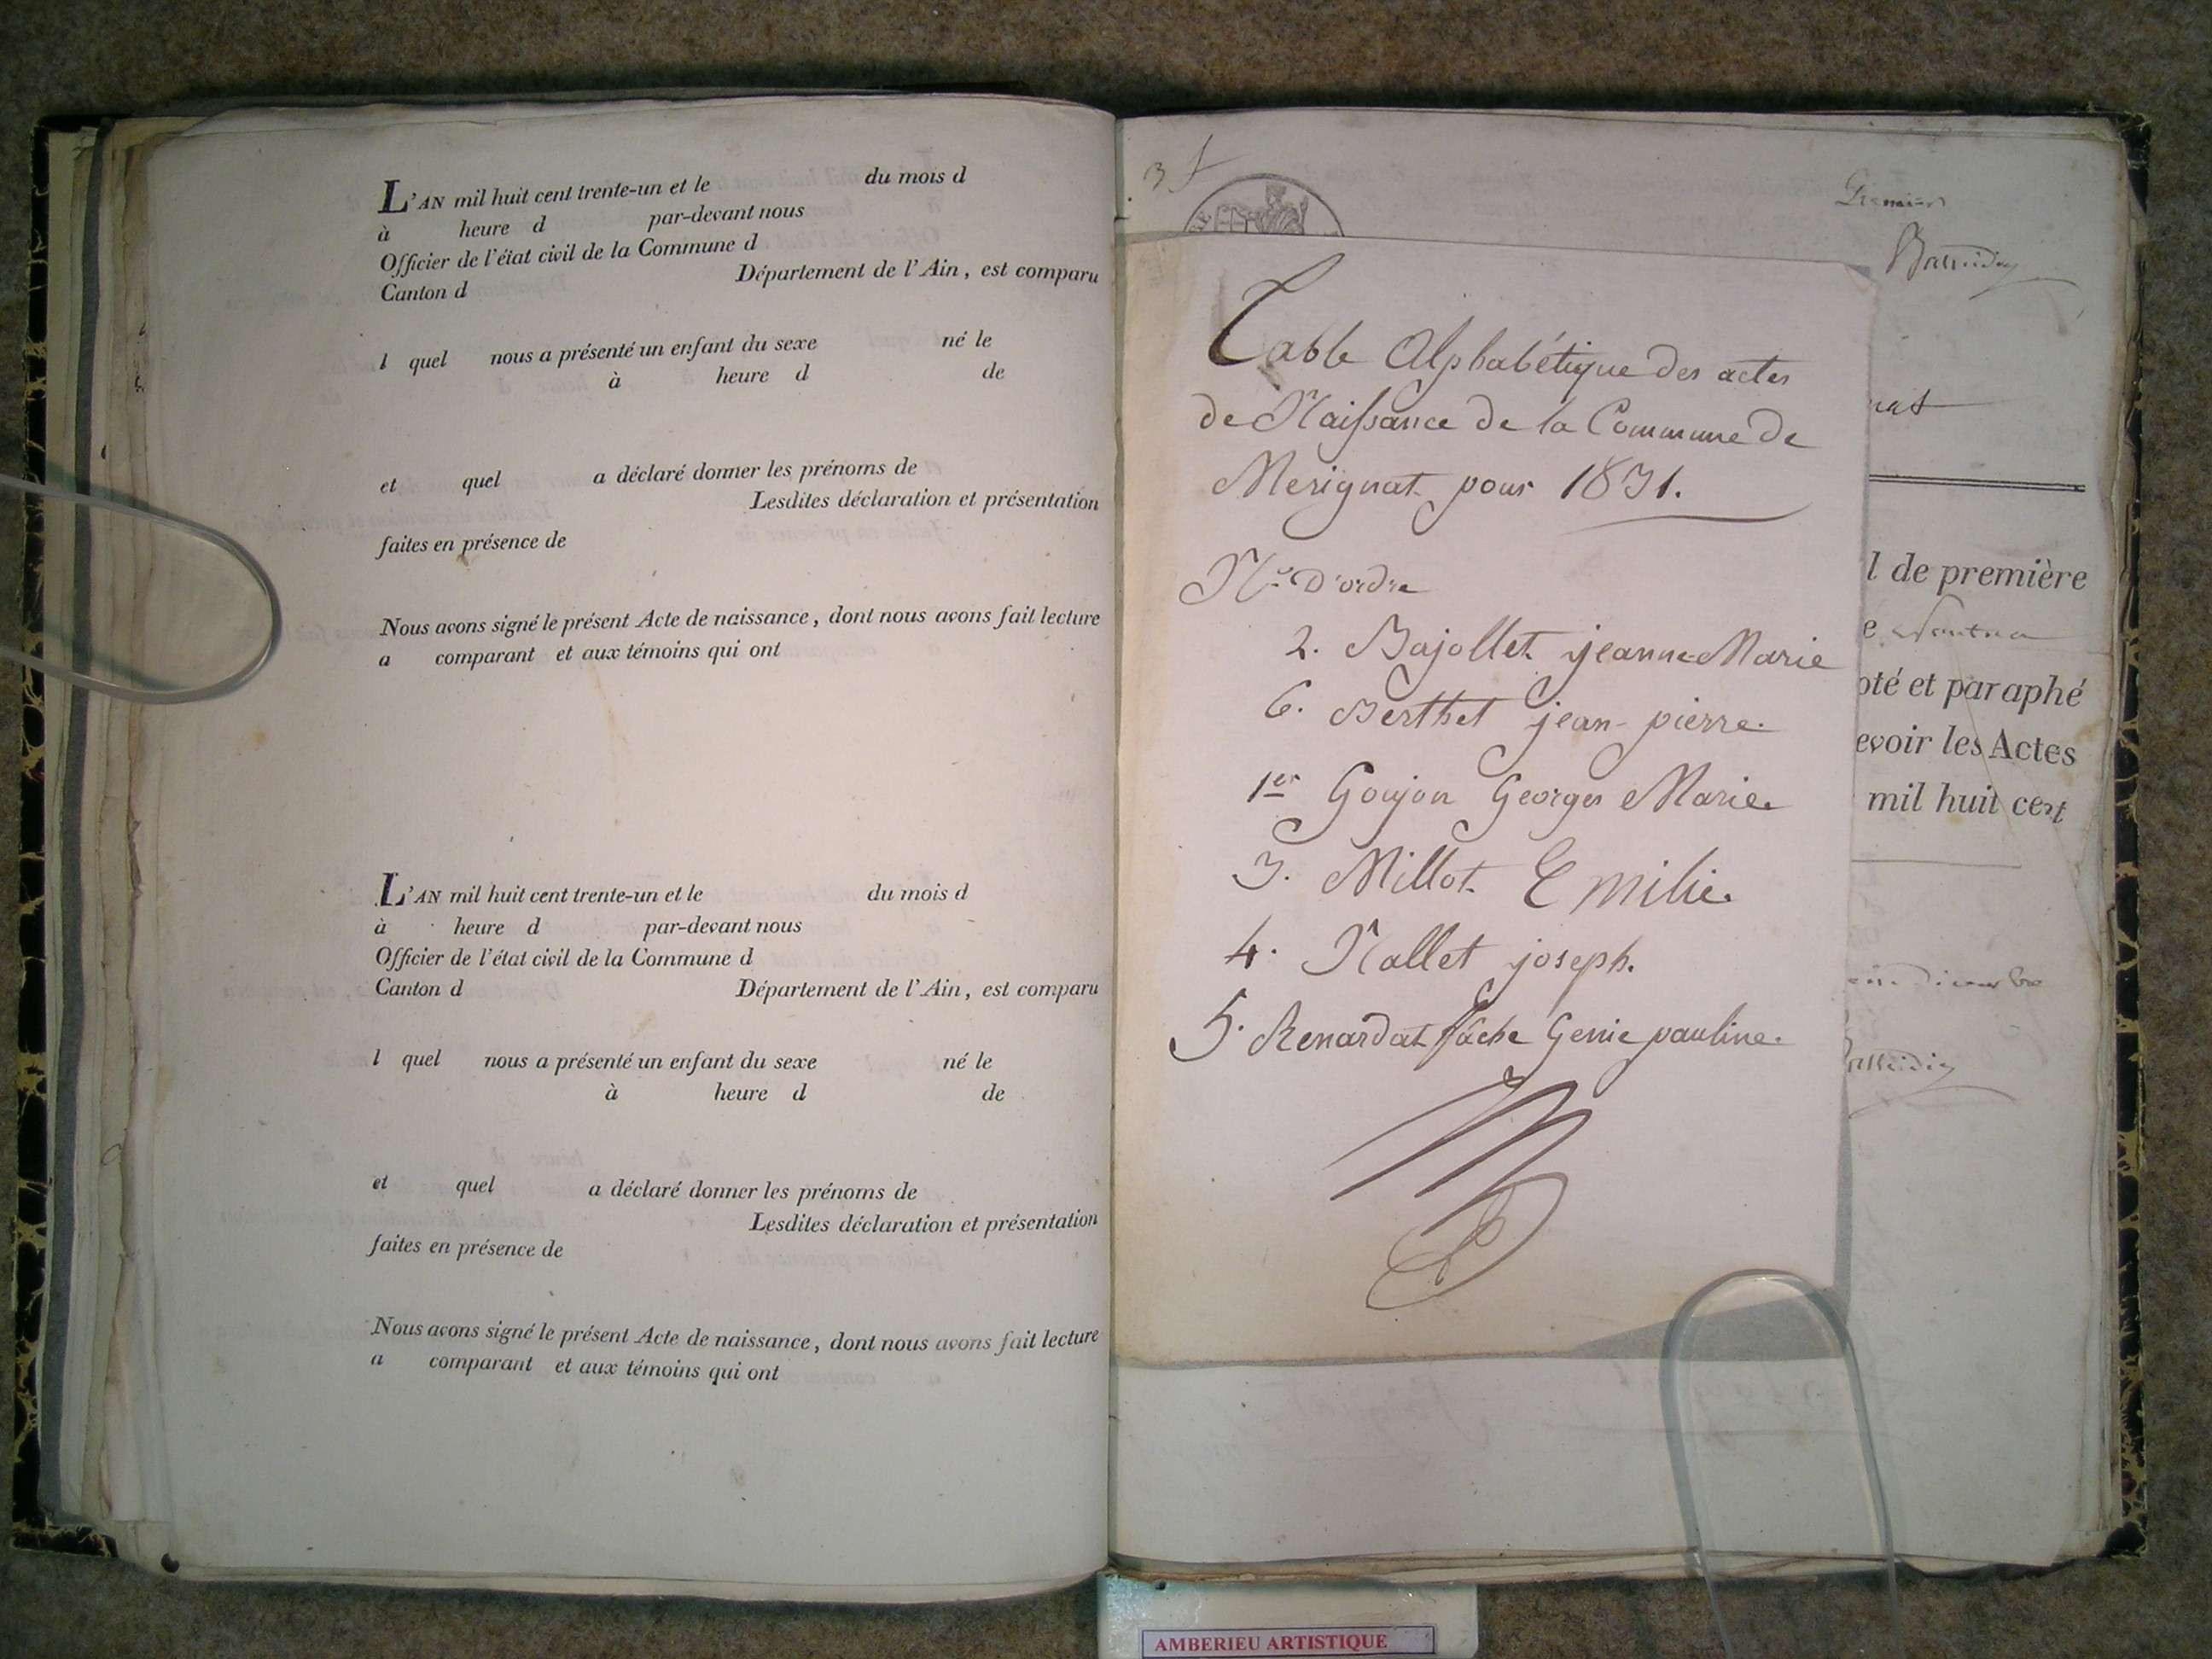 L'AN mil huit cent trente-un et le du mois d
à heure d par-devant nous
Officier de l'état civil de la Commune d
Canton d Département de l'Ain, est comparu
l quel nous a présenté un enfant du sexe né le
à heure d de
et quel a déclaré donner les prénoms de
Lesdites déclaration et présentation
faites en présence de
Nous avons signé le présent Acte de naissance, dont nous avons fait lecture
a comparant et aux témoins qui ont
L'AN mil huit cent trente-un et le du mois d
à heure d par-devant nous
Officier de l'état civil de la Commune d
Canton d Département de l'Ain, est comparu
l quel nous a présenté un enfant du sexe né le
à heure d de
et quel a déclaré donner les prénoms de
Lesdites déclaration et présentation
faites en présence de
Nous avons signé le présent Acte de naissance, dont nous avons fait lecture
a comparant et aux témoins qui ont
Premier
Table Alphabétique des actes
de Naissance de la Commune de
Merignat pour 1831.
N.° D'ordre
2. Bajollet jeanne Marie
6. Berthet jean-pierre.
1er Goujon Georges Marie.
3. Millot Emilie.
4. Nallet joseph.
5. Renardat fâche Genie pauline.
nat
l de première
e Nantua
oté et paraphé
evoir les Actes
mil huit cent
AMBERIEU ARTISTIQUE